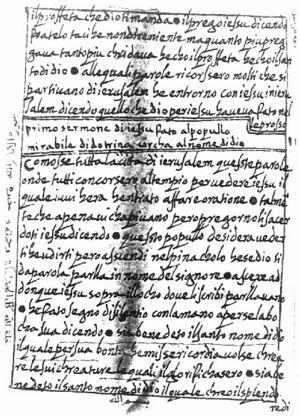 il profeta che dio ti manda • il prego iesu dicendo
fratelo taci he non dir niente ma quanto piu il preg
gava tanto piu chridava hecho il profeta hecho il san
to di dio • alle qual parole ricorsero molti che si
partivano di ierusalem he entrorno con iesu in ieru
salem dicendo quello che dio per iesu haveva fato nel
leproso
primo sermone di iesu fato al popullo
mirabile di dotrina circha al nome di dio
Comosse tutta la cita di ierusalem queste parole
onde tutti concorsero al tempio per vedere iesu il
quale ivi hera hentrato affare oratione • talme
te che apena vi chapivano pero pregorno li sacer
doti iesu dicendo • questo popullo desidera veder
ti he udirti pero assiendi nel pinacholo he se dio ti
da parola parlla in nome del signore • assexe ad
donque iesu sopra il locho dove li scribi parllavano
• he fato segno di silentio con la mano aperse la bo
cha sua dicendo • sia benedeto il santo nome di dio
il quale per sua bonta he missericordia volse chrea
re le sui chreature le quali il glorifichasero • sia be
nedeto il santo nome di dio il quale chreo il splendo
re di